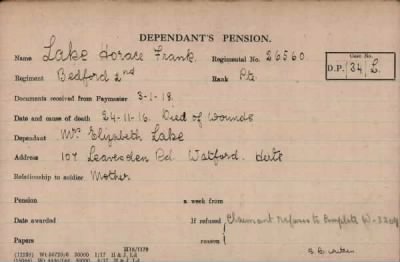 DEPENDANT'S PENSION.
Name Lake Horace Frank Regimental No. 26560
Case No.
D.P. 34 L.
Regiment Bedford 2nd Rank Pte
Documents received from Paymaster 3-1-18.
Date and cause of death 24-11-16. Died of Wounds
Dependant Mrs Elizabeth Lake
Address 107 Leavesden Rd. Watford. Herts
Relationship to soldier Mother
Pension a week from
Date awarded If refused Claimant refuses to complete W-5204
Papers reason